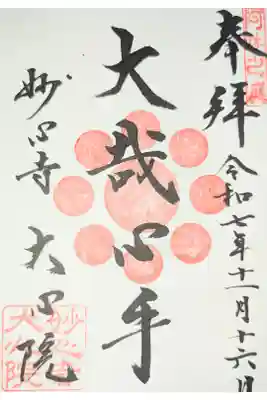 奉拝
令和七年十一月十六日
大哉心手
妙心寺 大心院
妙心寺
大心院